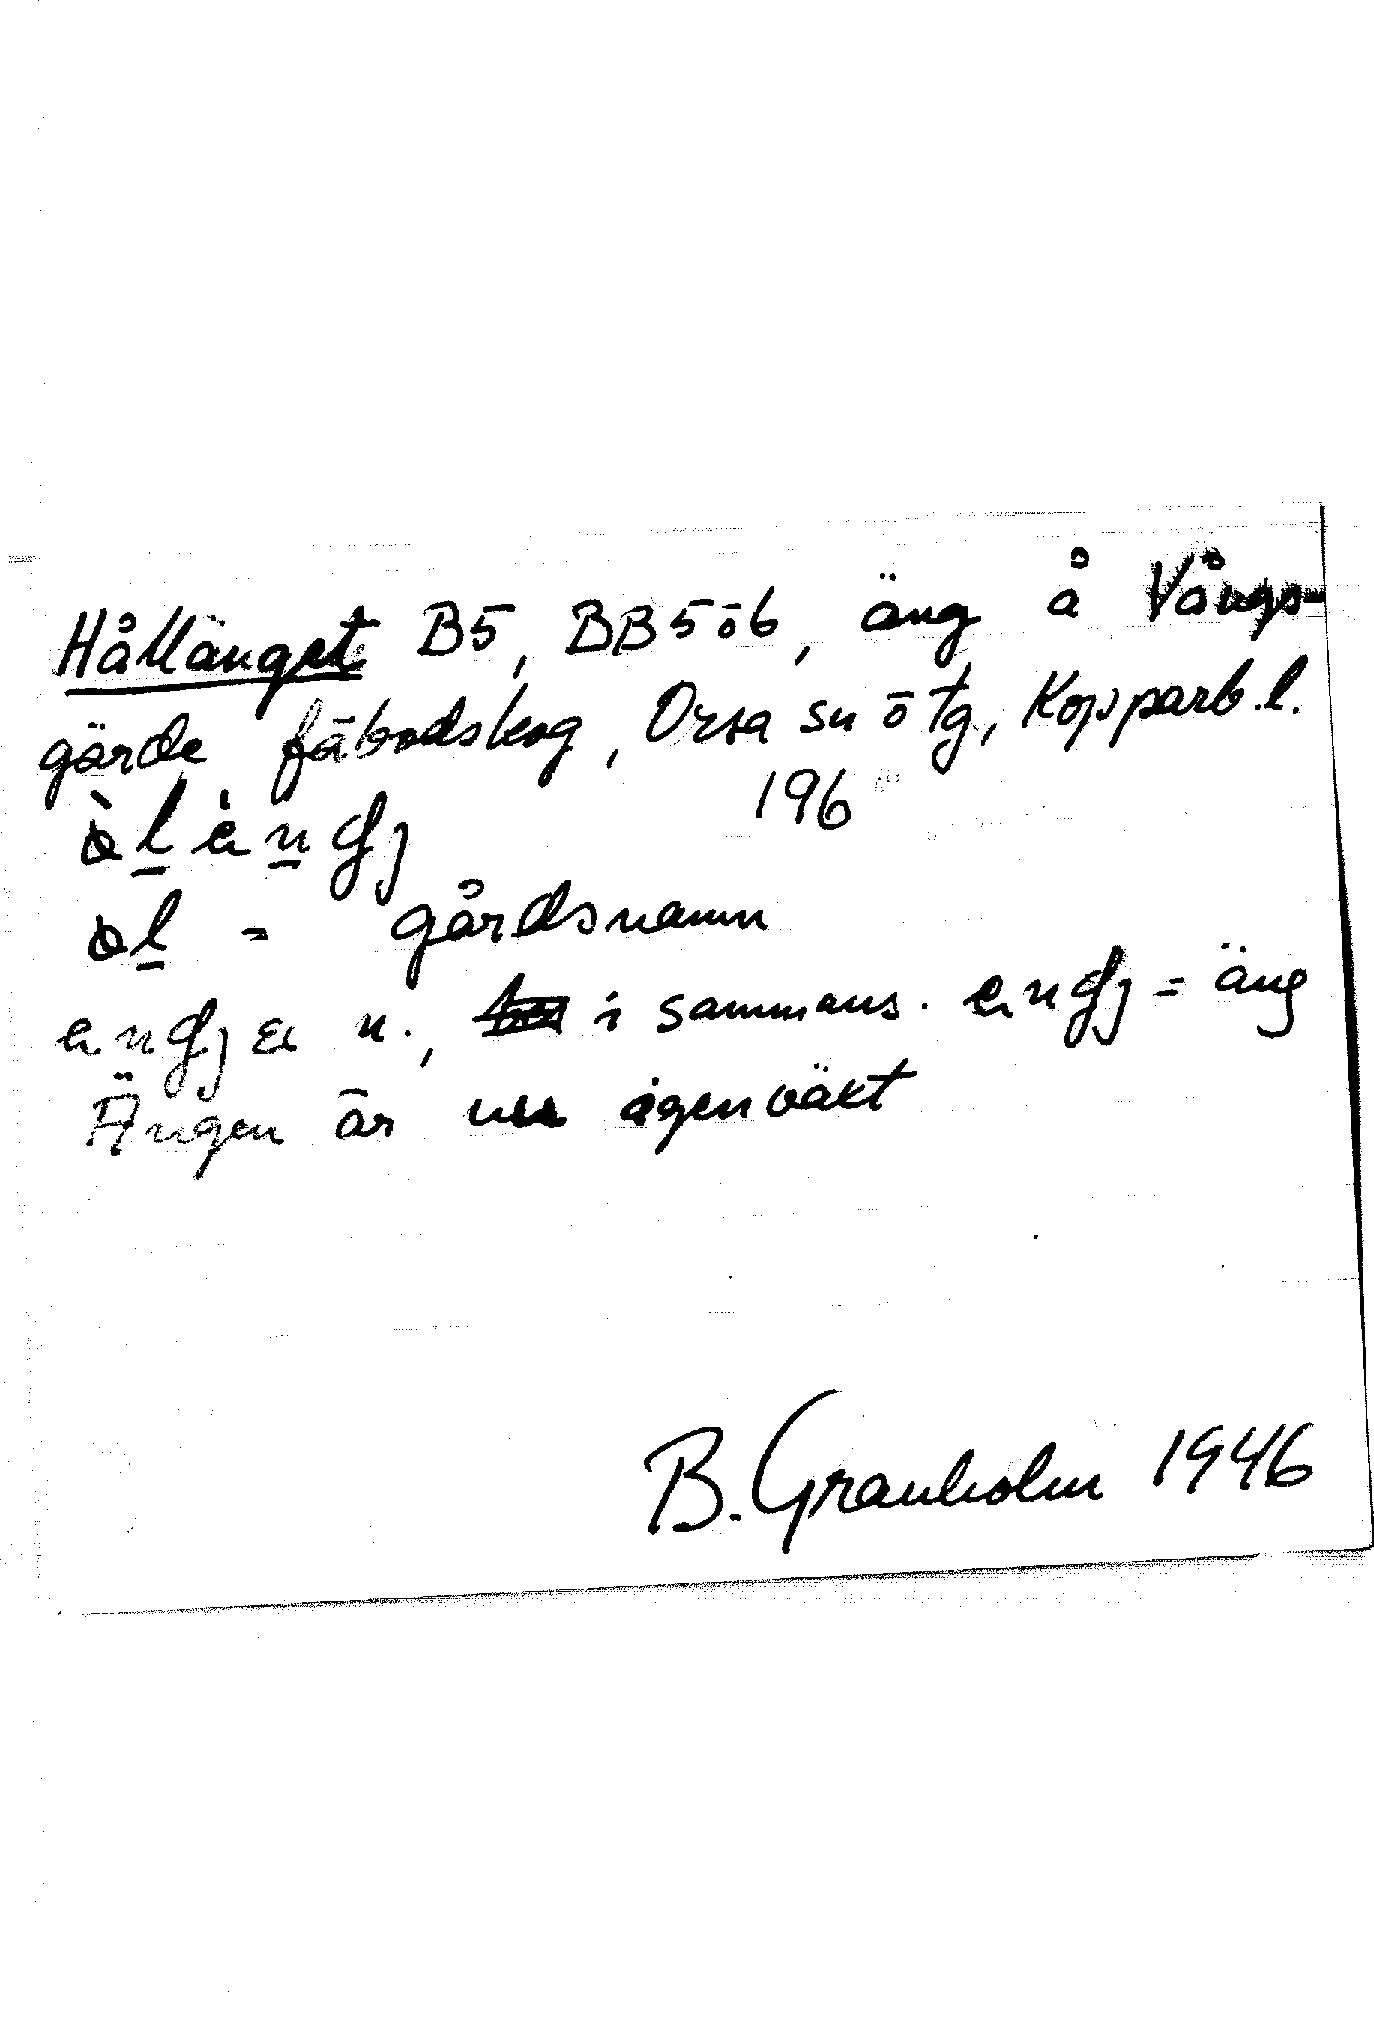 Hållänget B5, BB5öb, äng å Vångs-
gärde fäbodskog, Orsa sn ö tg, Kopparb.l.
196
= gårdsnamn
n., i sammans. = äng
Ängen är nu igenväxt
B. Granholm 1946